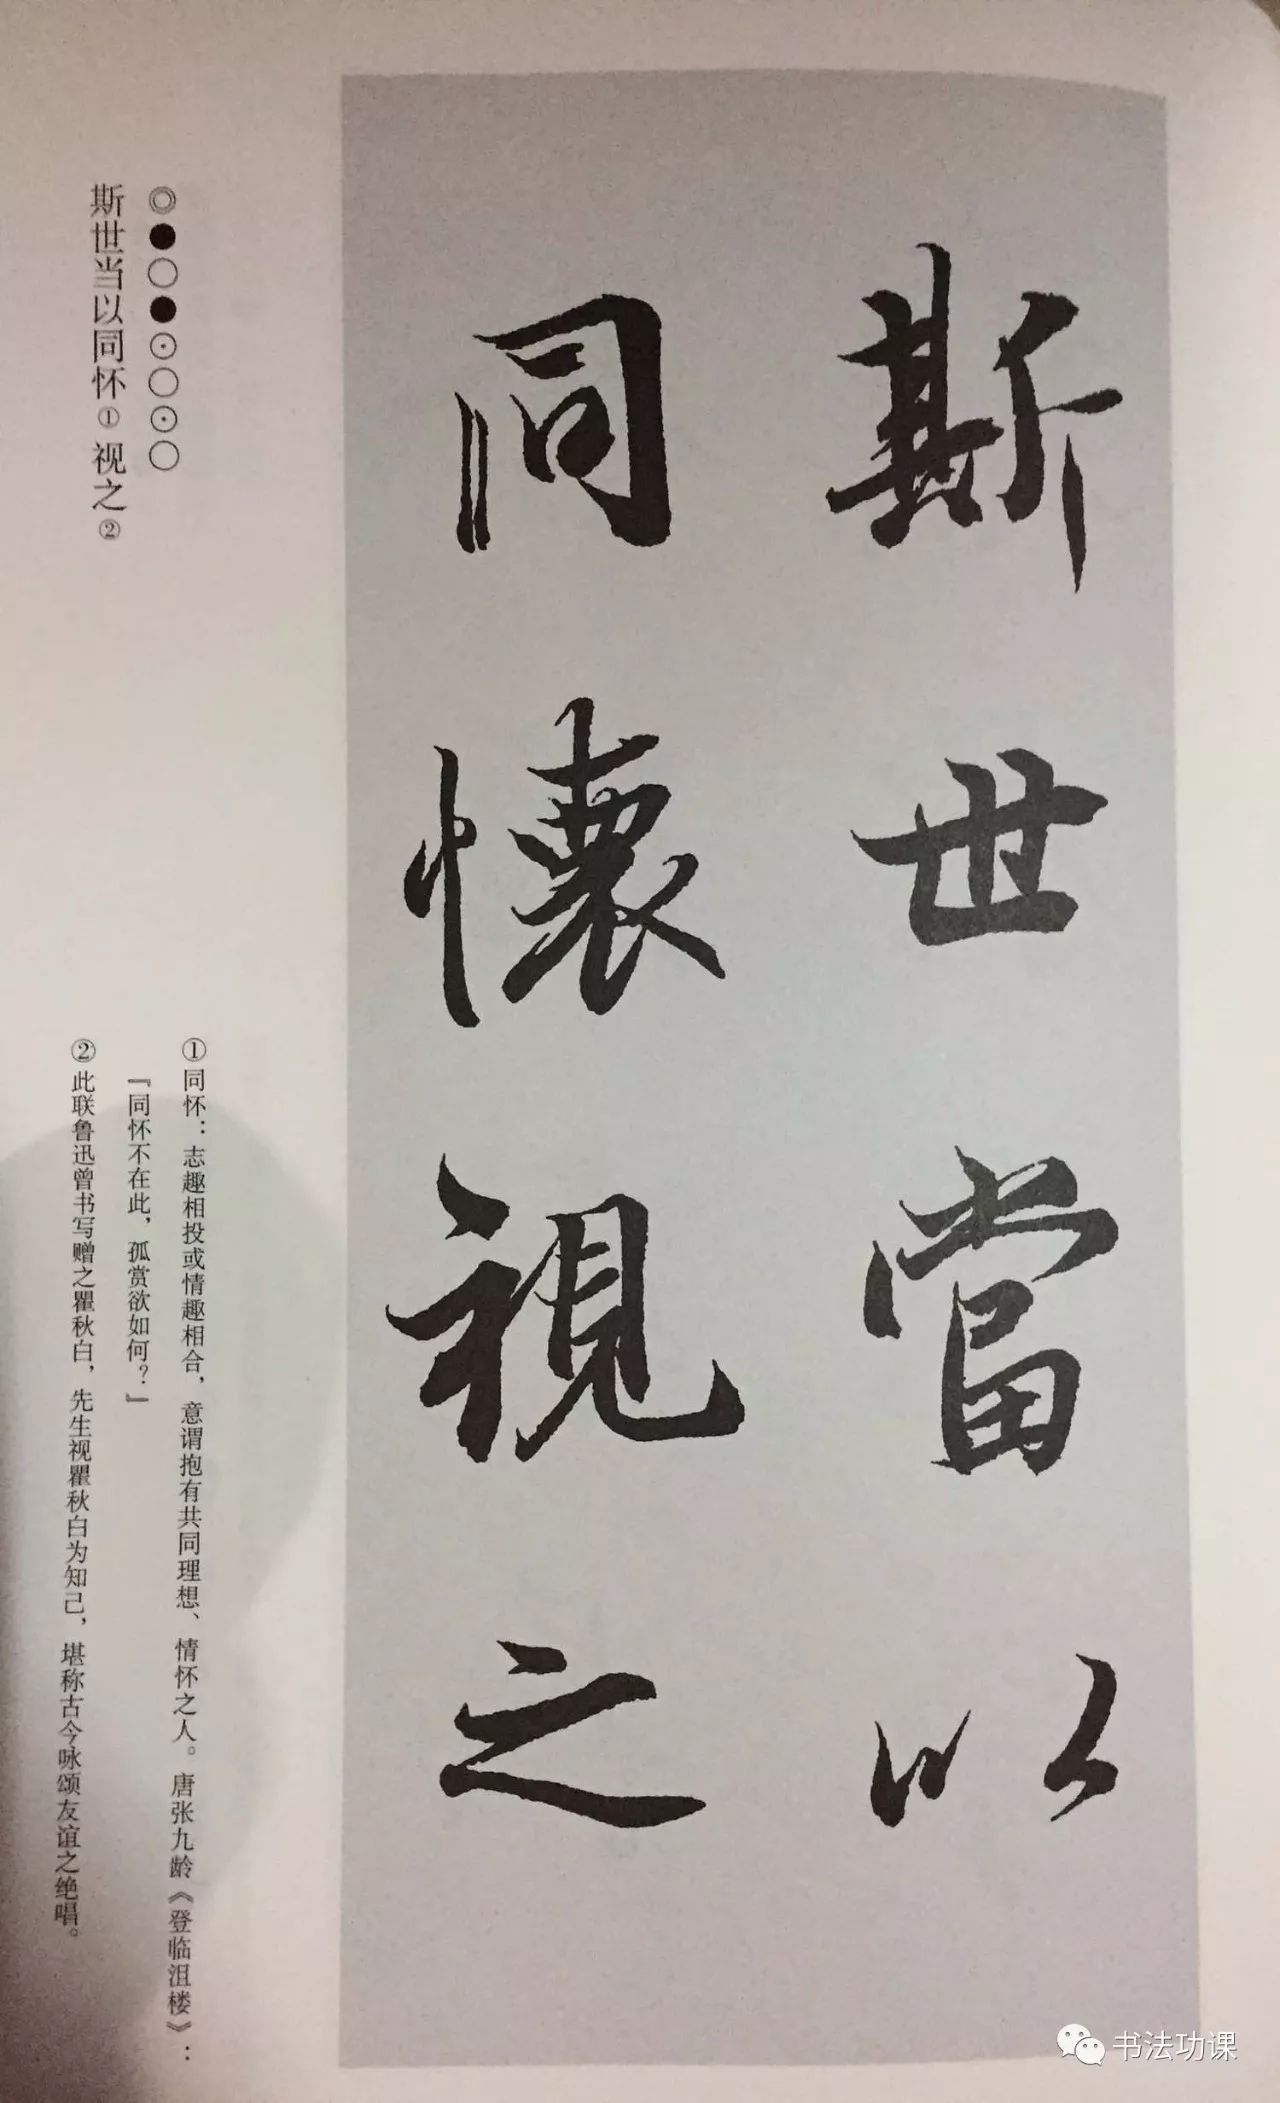 斯世當以
同懷視之
◎●○●⊙○⊙○
斯世当以同怀①视之②
①同怀：志趣相投或情趣相合，意谓抱有共同理想、情怀之人。唐张九龄《登临沮楼》：
『同怀不在此，孤赏欲如何？』
②此联鲁迅曾书写赠之瞿秋白，先生视瞿秋白为知己，堪称古今咏颂友谊之绝唱。
书法功课